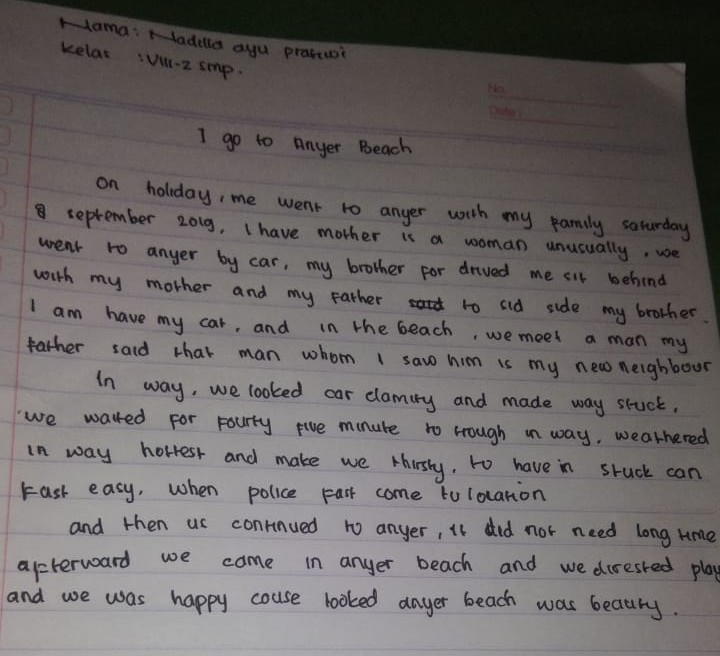 Nama: Nadilla ayu pratiwi
Kelas : VIII-2 smp.
No.
Date:
I go to Anyer Beach
On holiday, me went to anyer with my family saturday
8 september 2019, I have mother is a woman unusually, we
went to anyer by car, my brother for drived me sit behind
with my mother and my father to sid side my brother.
I am have my cat, and in the beach, we meet a man my
father said that man whom I saw him is my new neighbour
In way, we looked car clamity and made way stuck,
we waited for fourty five minute to trough in way, weathered
in way hottest and make we thirsty, to have in stuck can
fast easy, when police fast come to location
and then us continued to anyer, it did not need long time
afterward we came in anyer beach and we dirested play
and we was happy couse looked anyer beach was beauty.